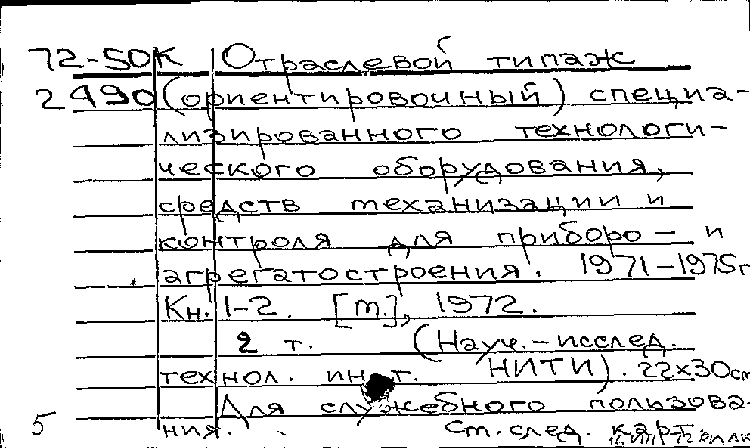 72-50К Отраслевой типаж
2490 (ориентировочный) специа-
лизированного технологи-
ческого оборудования,
средств механизации и
контроля для приборо- и
агрегатостроения. 1971-1975г
Кн. 1-2. [m.], 1972.
2 т. (Науч.-исслед.
технол. ин-т. НИТИ). 22х30см
Для служебного пользова-
5 ния. См. след. карт.